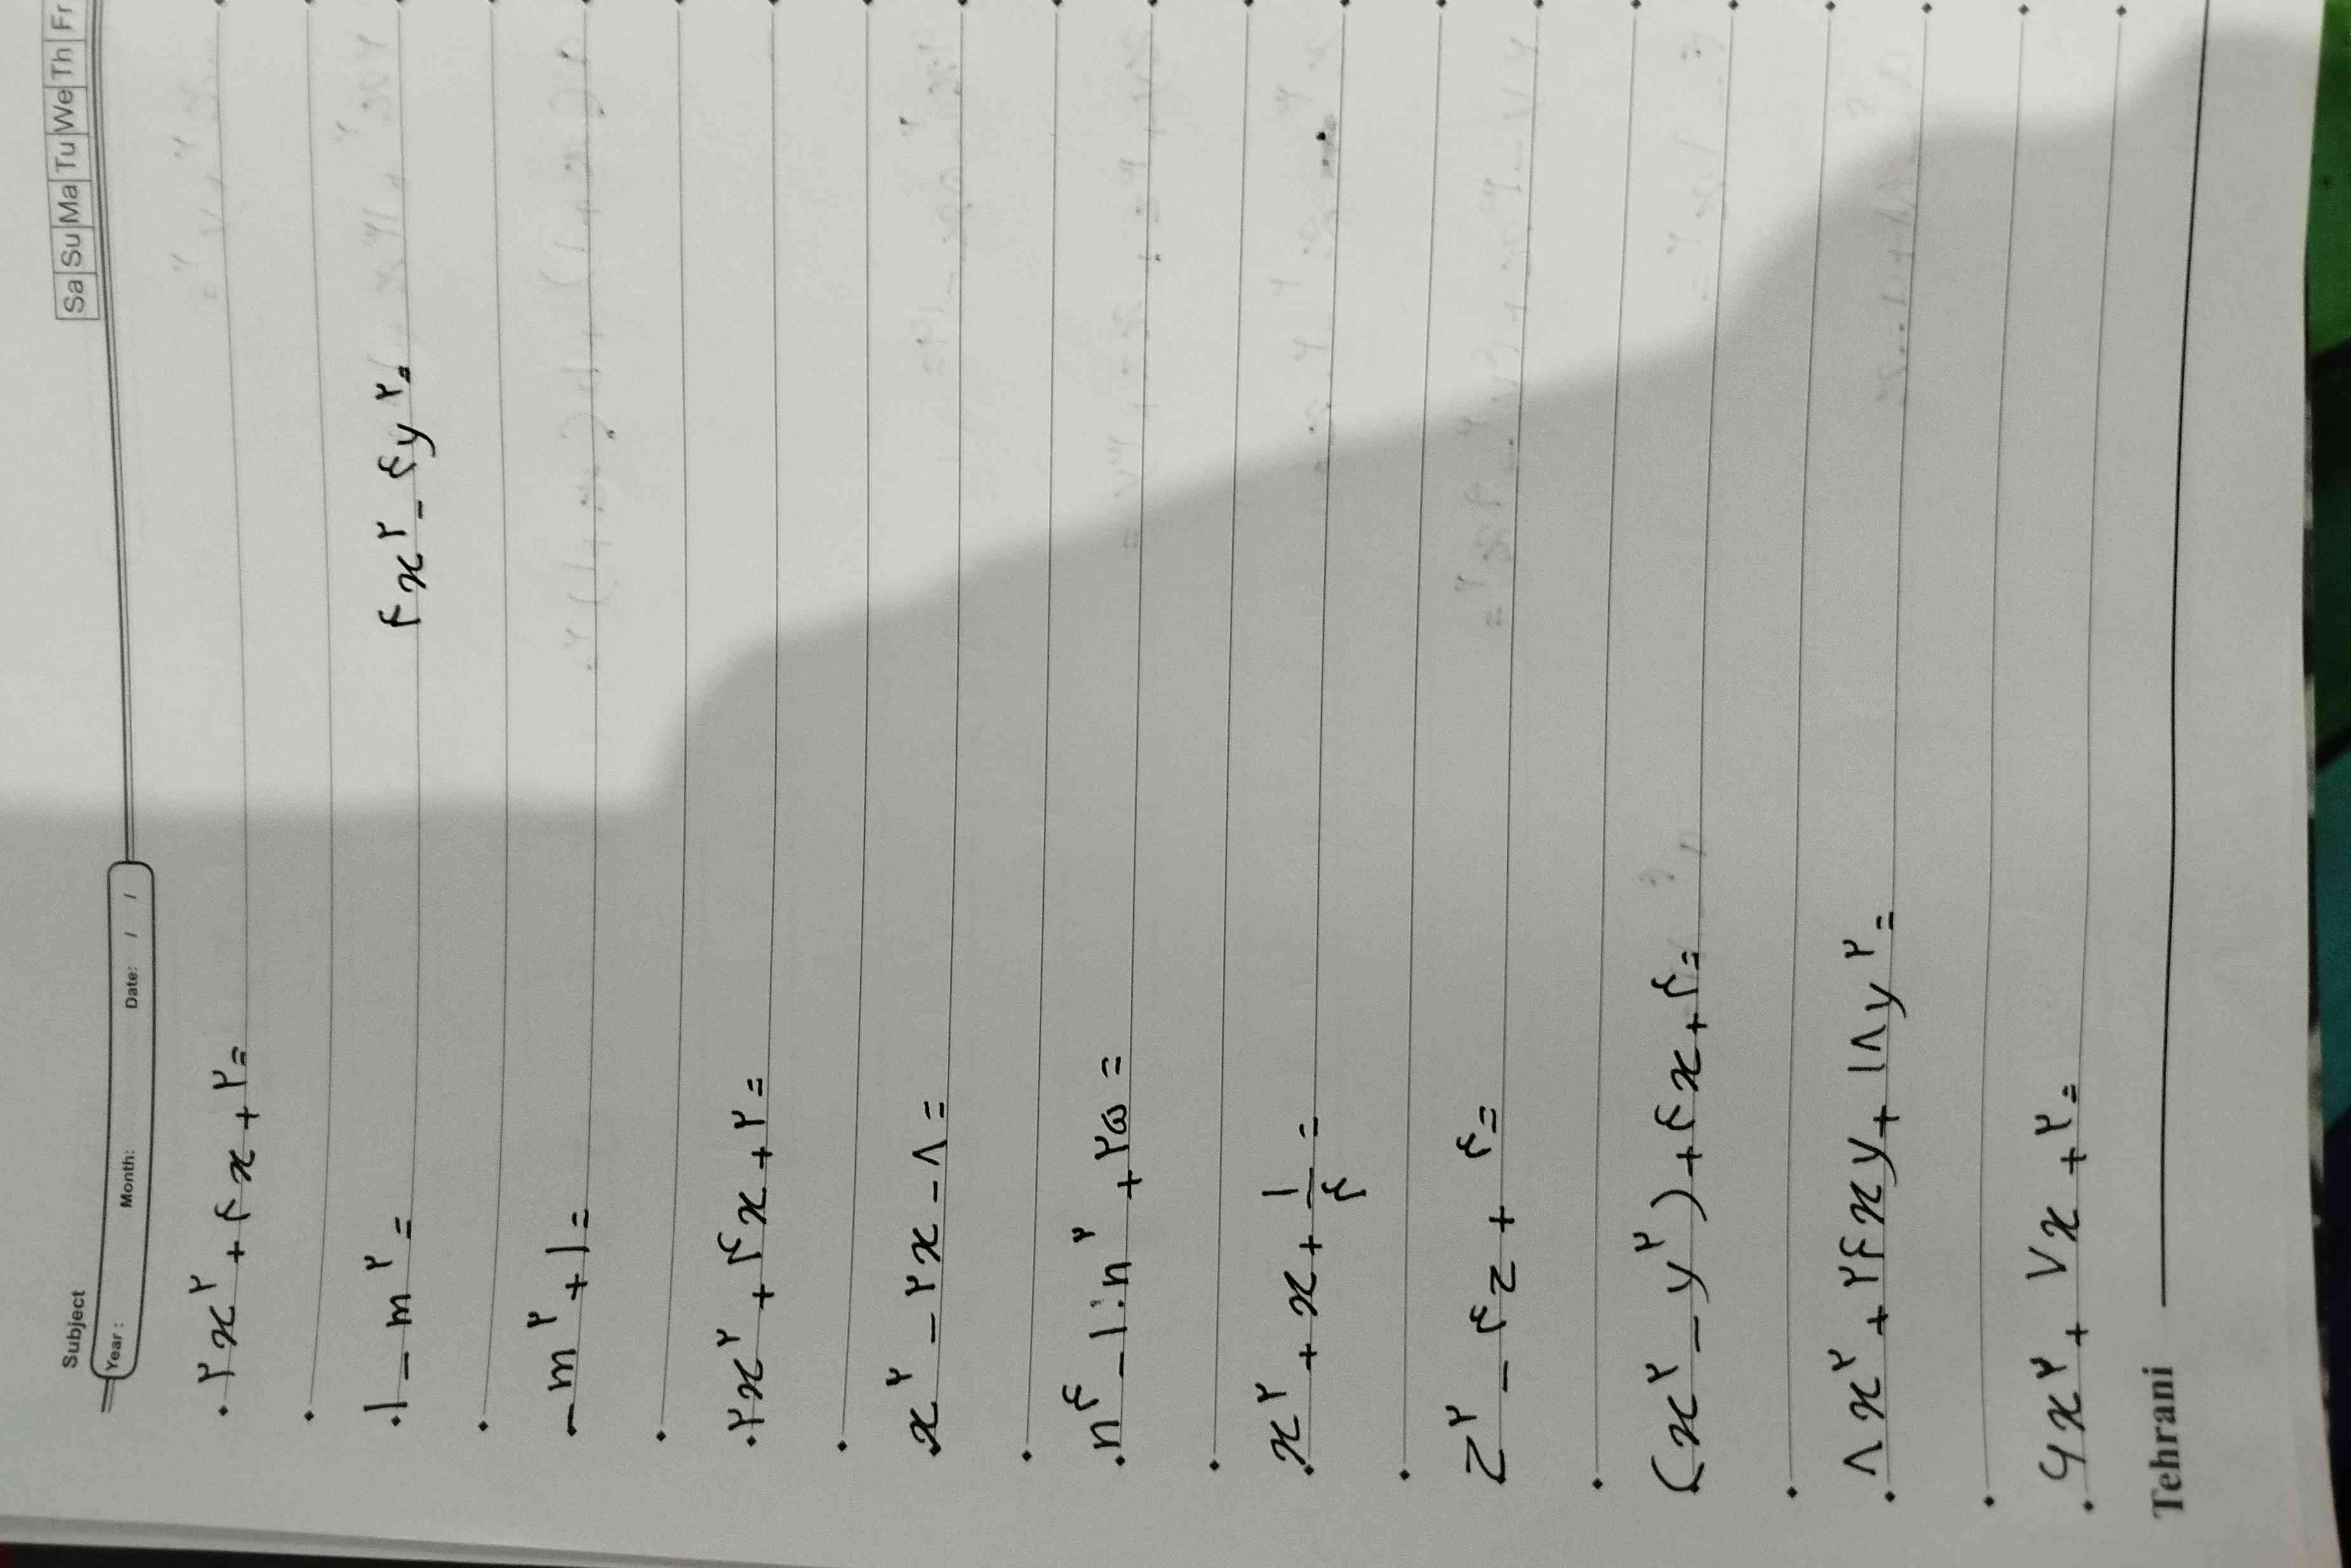 Subject
Year : Month: Date: / / Sa Su Ma Tu We Th Fr
۲x^۲ + ۴x + ۲ =
۱ - m^۲ = ۴x^۲ - ۴y^۲ =
-m^۲ + ۱ =
۲x^۲ + ۴x + ۲ =
x^۲ - ۲x - ۸ =
n^۴ - ۱۰n^۲ + ۲۵ =
x^۲ + x + ۱/۴ =
z^۲ - ۴z + ۴ =
(x^۲ - y^۲) + ۴x + ۴ =
۸x^۲ + ۲۴xy + ۱۸y^۲ =
۶x^۲ + ۷x + ۲ =
Tehrani